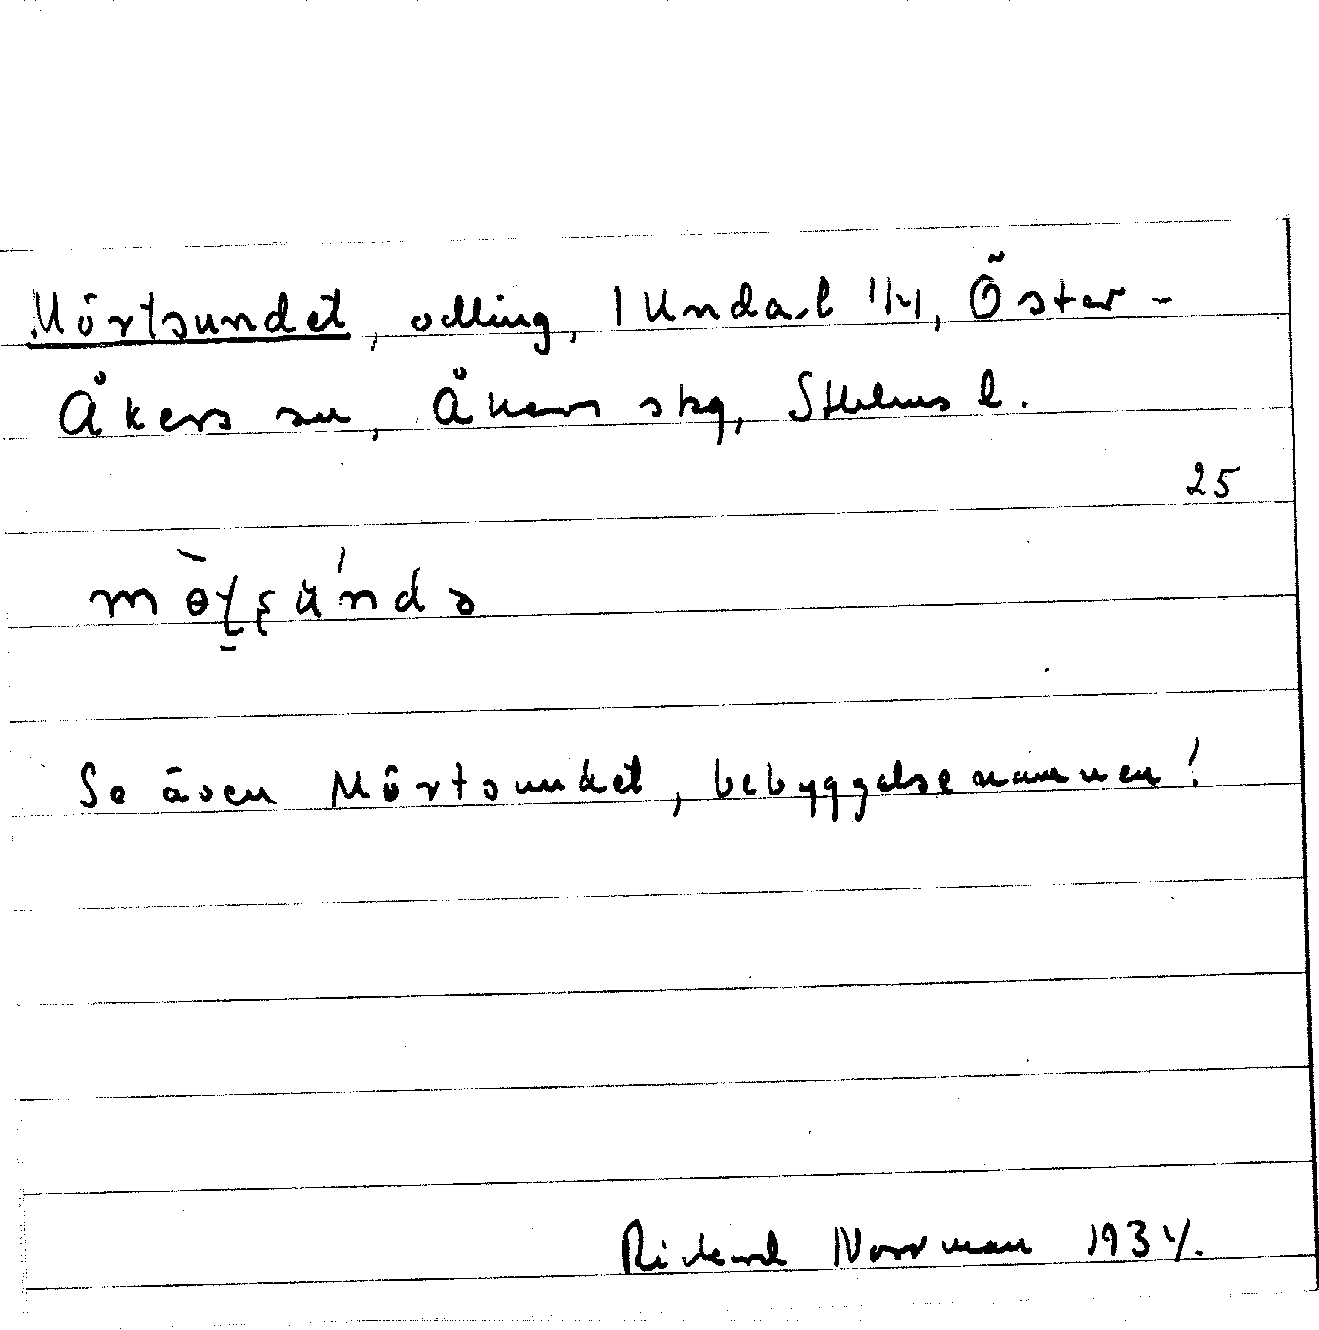 Mörtsundet, odling, Kundal 1/4, Öster-
Åkers sn, Åkers skg, Sthlms l.
25
So även Mörtsundet, bebyggelsenamnen!
Rickard Norrman 1934.